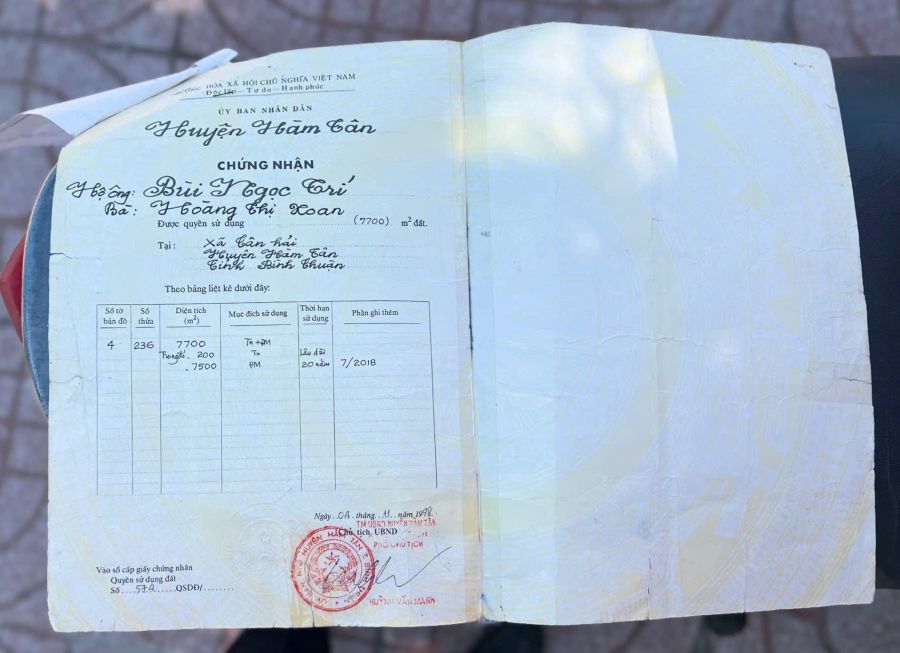 CỘNG HÒA XÃ HỘI CHỦ NGHĨA VIỆT NAM
Độc lập - Tự do - Hạnh phúc
ỦY BAN NHÂN DÂN
Huyện Hàm Tân
CHỨNG NHẬN
Hộ ông: Bùi Ngọc Trí
Bà: Hoàng Thị Xoan
Được quyền sử dụng (7700) m² đất.
Tại: Xã Tân hải
Huyện Hàm Tân
Tỉnh Bình Thuận
Theo bảng liệt kê dưới đây:
Số tờ bản đồ Số thửa Diện tích (m²) Mục đích sử dụng Thời hạn sử dụng Phần ghi thêm
4 236 7700 Tn+ĐM
Trong đó. 200 Tn Lâu dài
. 7500 ĐM 20 năm 7/2018
Ngày tháng 11 năm 1998
TM.UBND HUYỆN HÀM TÂN
Chủ tịch UBND
PHÓ CHỦ TỊCH
Vào sổ cấp giấy chứng nhận
Quyền sử dụng đất
Số QSDĐ/
HUỲNH VĂN MẠNH